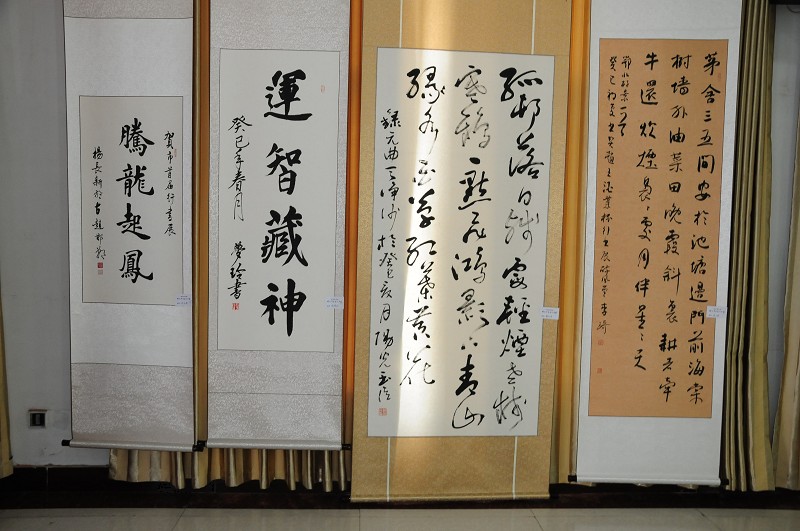 茅舍三五間安於池塘邊門前海棠
樹墙外油菜田晚霞斜裏耕夫牽
牛還炊煙長處月伴星
癸巳初夏
孤邨落日殘霞輕煙老樹
寒鴉一點飛鴻影下青山
綠水白草紅葉黃花
錄元曲天淨沙於癸巳夏月陽光
運智藏神
癸巳年春月
夢玲書
賀市首届行書展
騰龍起鳳
楊長新於古龍